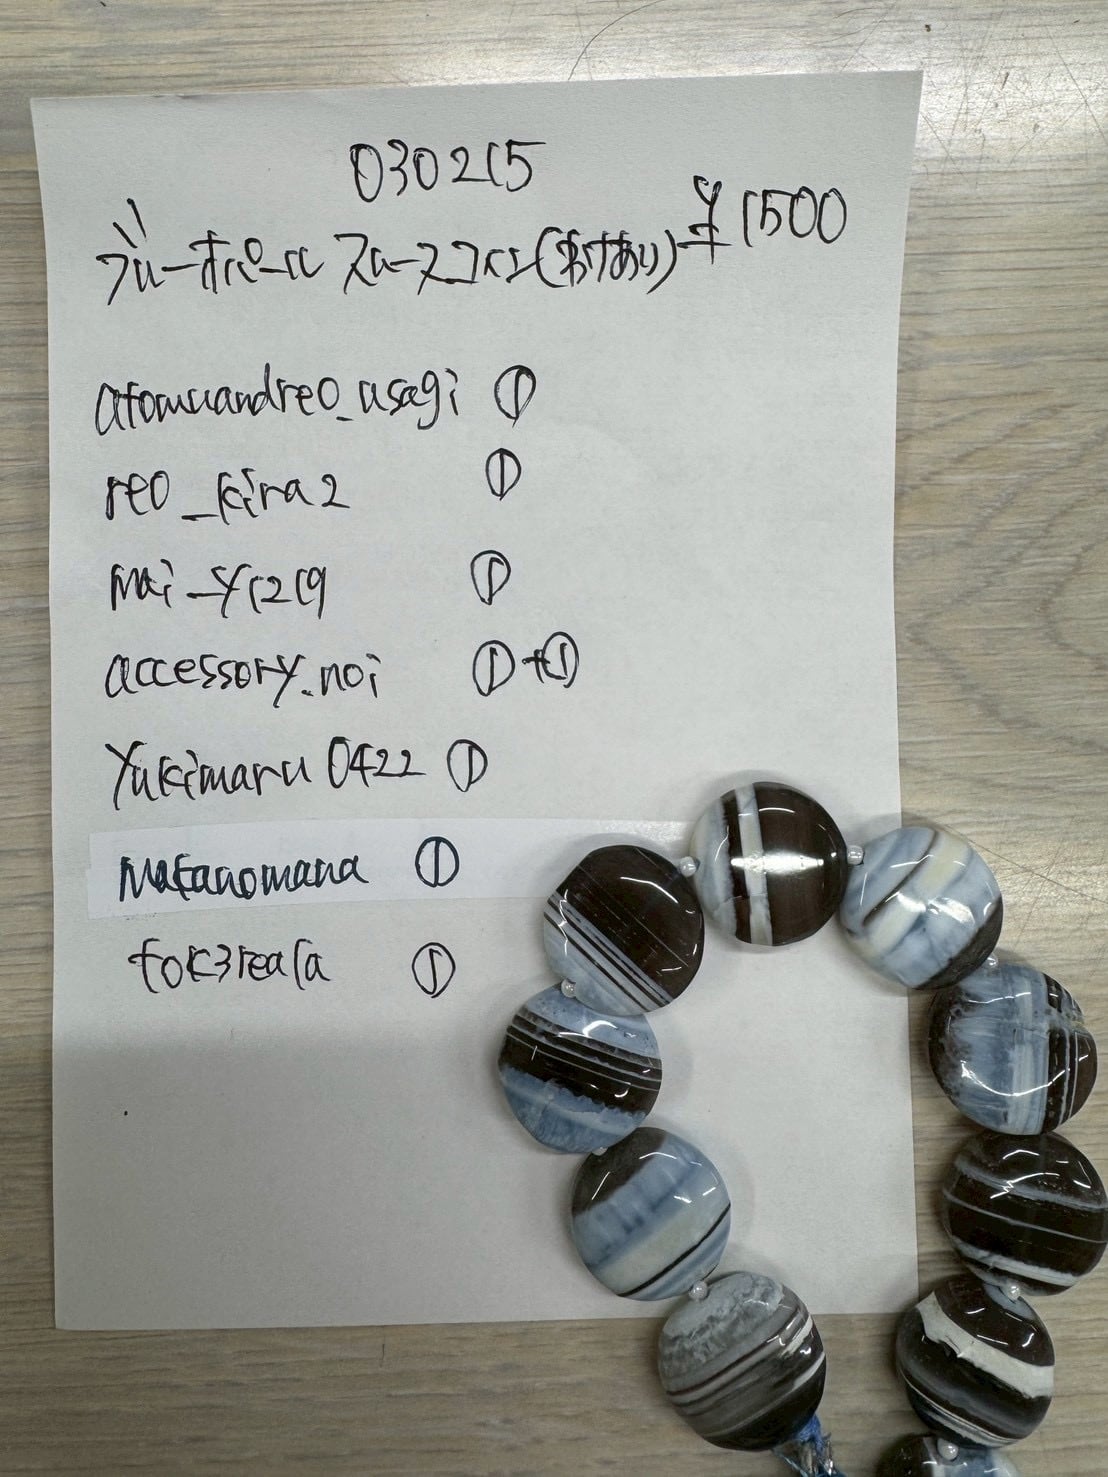 030215
ブルーオパール スムースコイン(わけあり) ¥1500
atomuandreo_usagi ①
reo_kira2 ①
mai_y1219 ①
accessory.noi ①+①
yukimaru0422 ①
matanomana ①
tok3reala ①